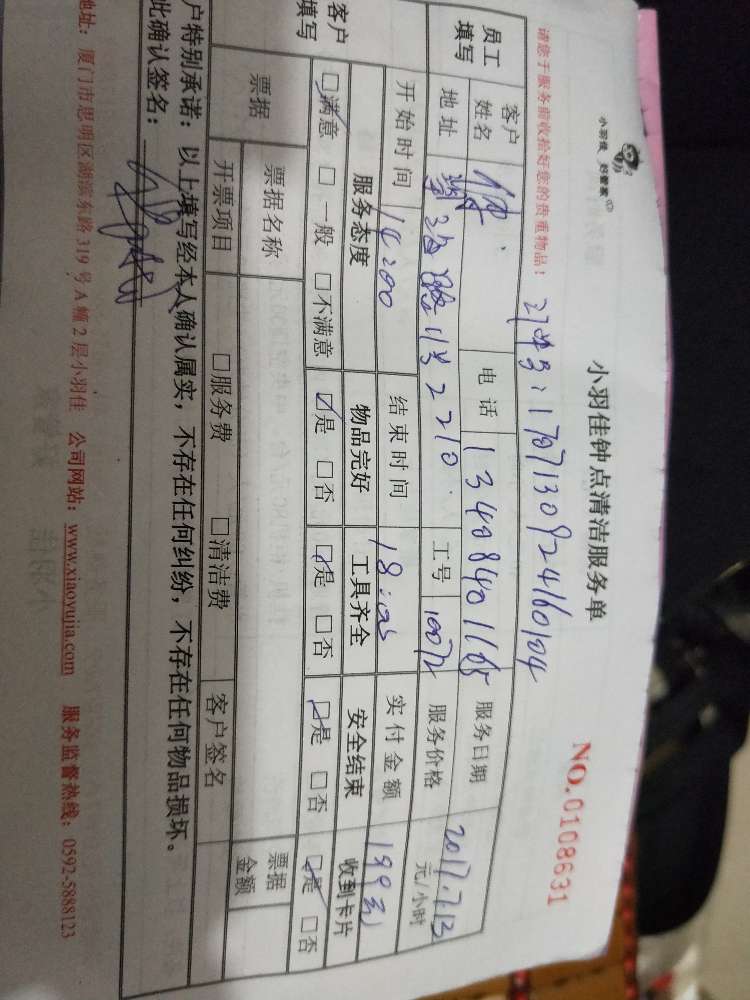 小羽佳 好管家
小羽佳钟点清洁服务单
NO.0108631
请您于服务前收拾好您的贵重物品!
1707130924160104
员工填写
客户姓名
电话 13408401165
服务日期 2017.7.13
地址
2210
工号
服务价格 元/小时
开始时间 14:00
结束时间 18:00
实付金额 199元
客户填写
服务态度 物品完好 工具齐全 安全结束 收到卡片
☑满意 □一般 □不满意 ☑是 □否 ☑是 □否 ☑是 □否 ☑是 □否
票据 票据名称 票据金额
开票项目 □服务费 □清洁费 客户签名
户特别承诺:以上填写经本人确认属实,不存在任何纠纷,不存在任何物品损坏。
此确认签名:
地址:厦门市思明区湖滨东路319号A幢2层小羽佳 公司网站:www.xiaoyujia.com 服务监督热线:0592-5888123